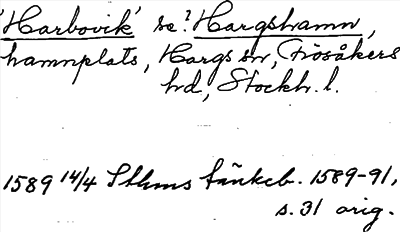 'Harbovik' se? Hargshamn,
hamnplats, Hargs sn, Frösåkers
hd, Stockh. l.
1589 14/4 Sthms tänkeb. 1589-91,
s. 31 orig.